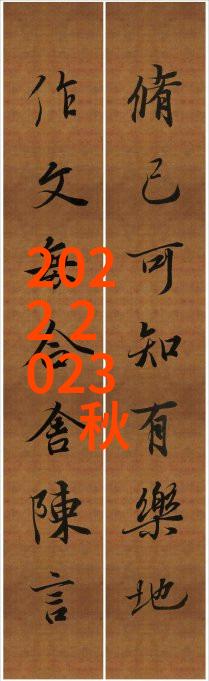 脩己可知有樂地
作文每合舍陳言
202
2 2
023
秋